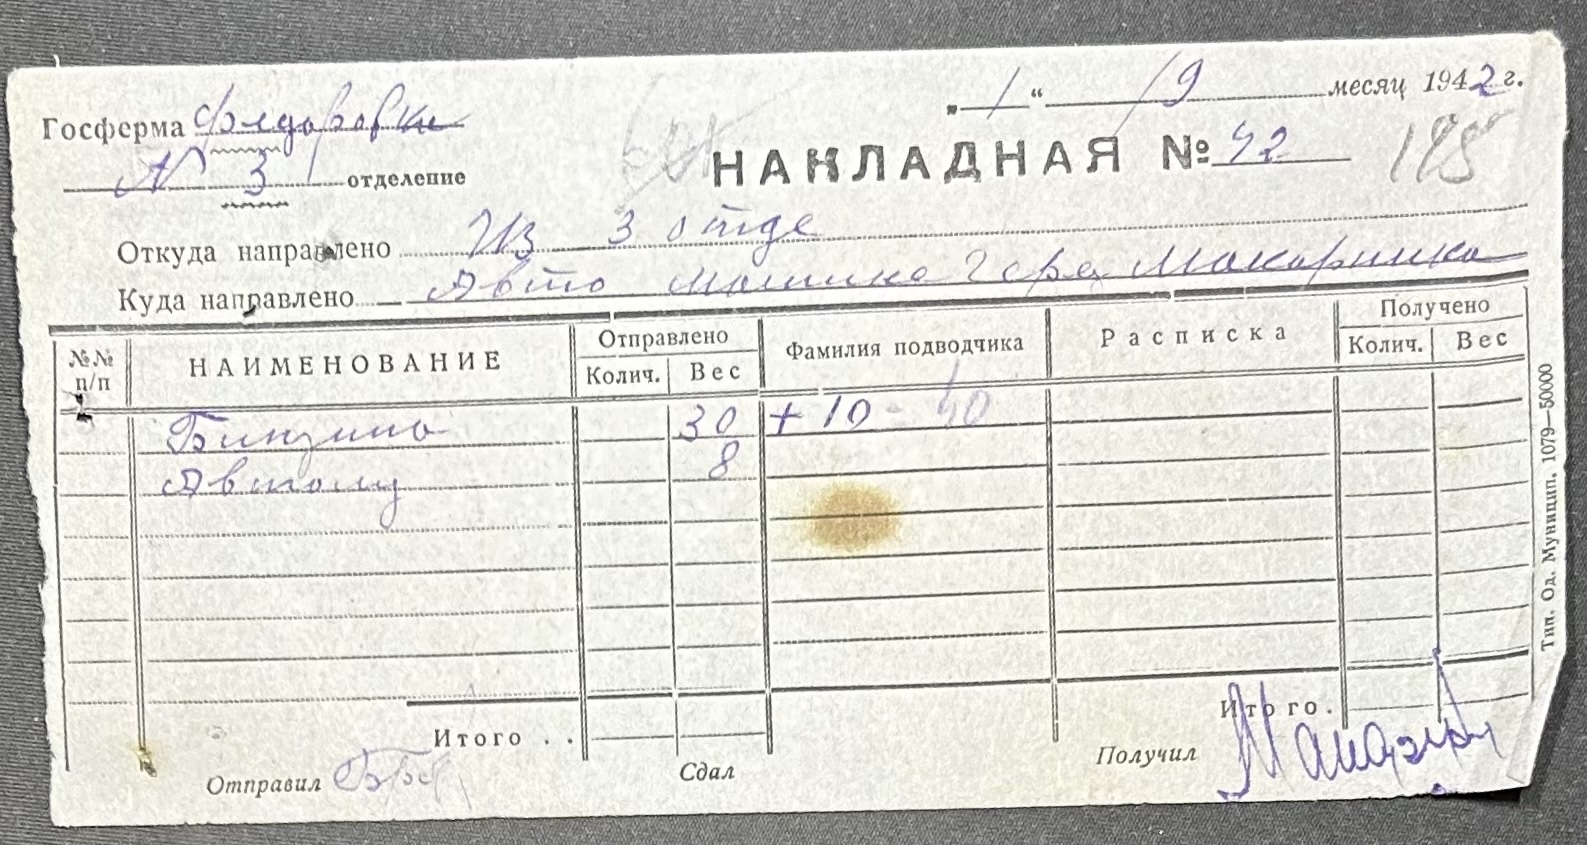 Госферма Федоровка
„ 1 “ /9 месяц 1942 г.
№ 3 отделение
НАКЛАДНАЯ № 42
195
Откуда направлено Из 3 отде
Куда направлено Авто машина Макаринка
№№ п/п НАИМЕНОВАНИЕ Отправлено Колич. Вес Фамилия подводчика Расписка Получено Колич. Вес
Бинзина 30 + 10 = 40
Автолу 8
Итого . .
Итого .
Отправил
Сдал
Получил
Тип. Од. Муницип. 1079—50000